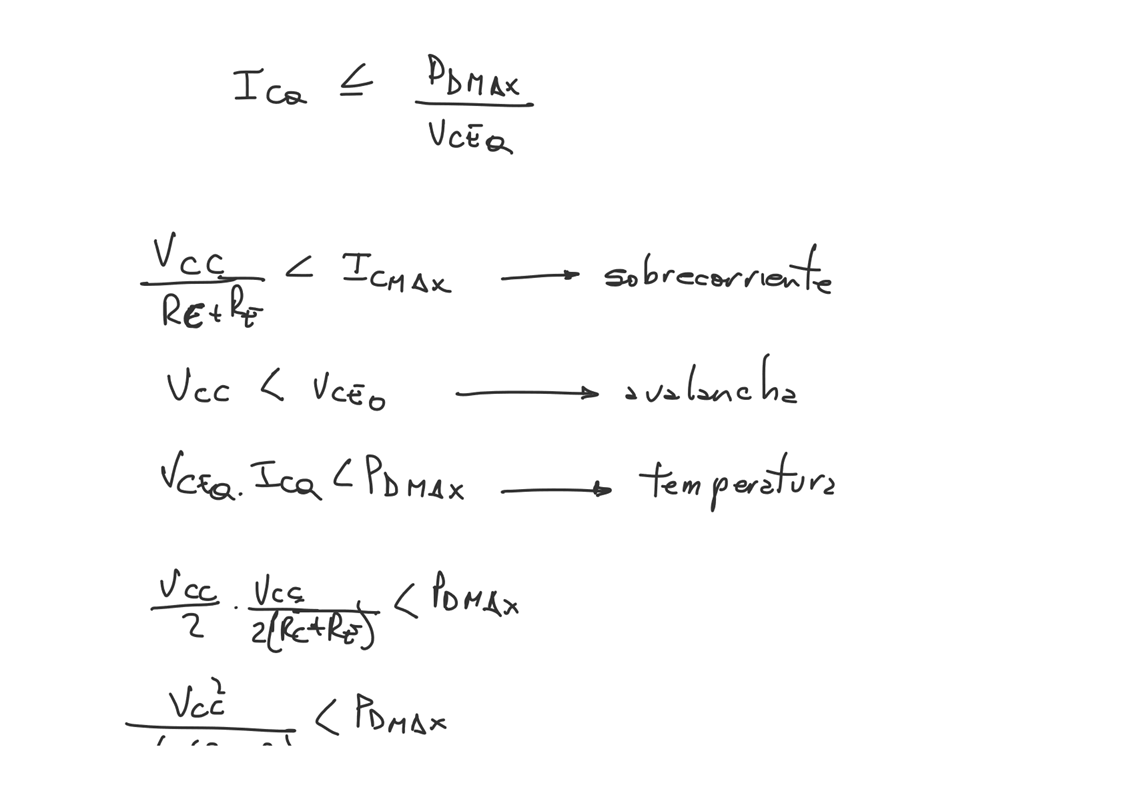 I_CQ ≤ P_DMAX / V_CEQ
V_CC / (R_C + R_E) < I_CMAX → sobrecorriente
V_CC < V_CEO → avalancha
V_CEQ . I_CQ < P_DMAX → temperatura
V_CC / 2 . V_CC / 2(R_C + R_E) < P_DMAX
V_CC² / < P_DMAX